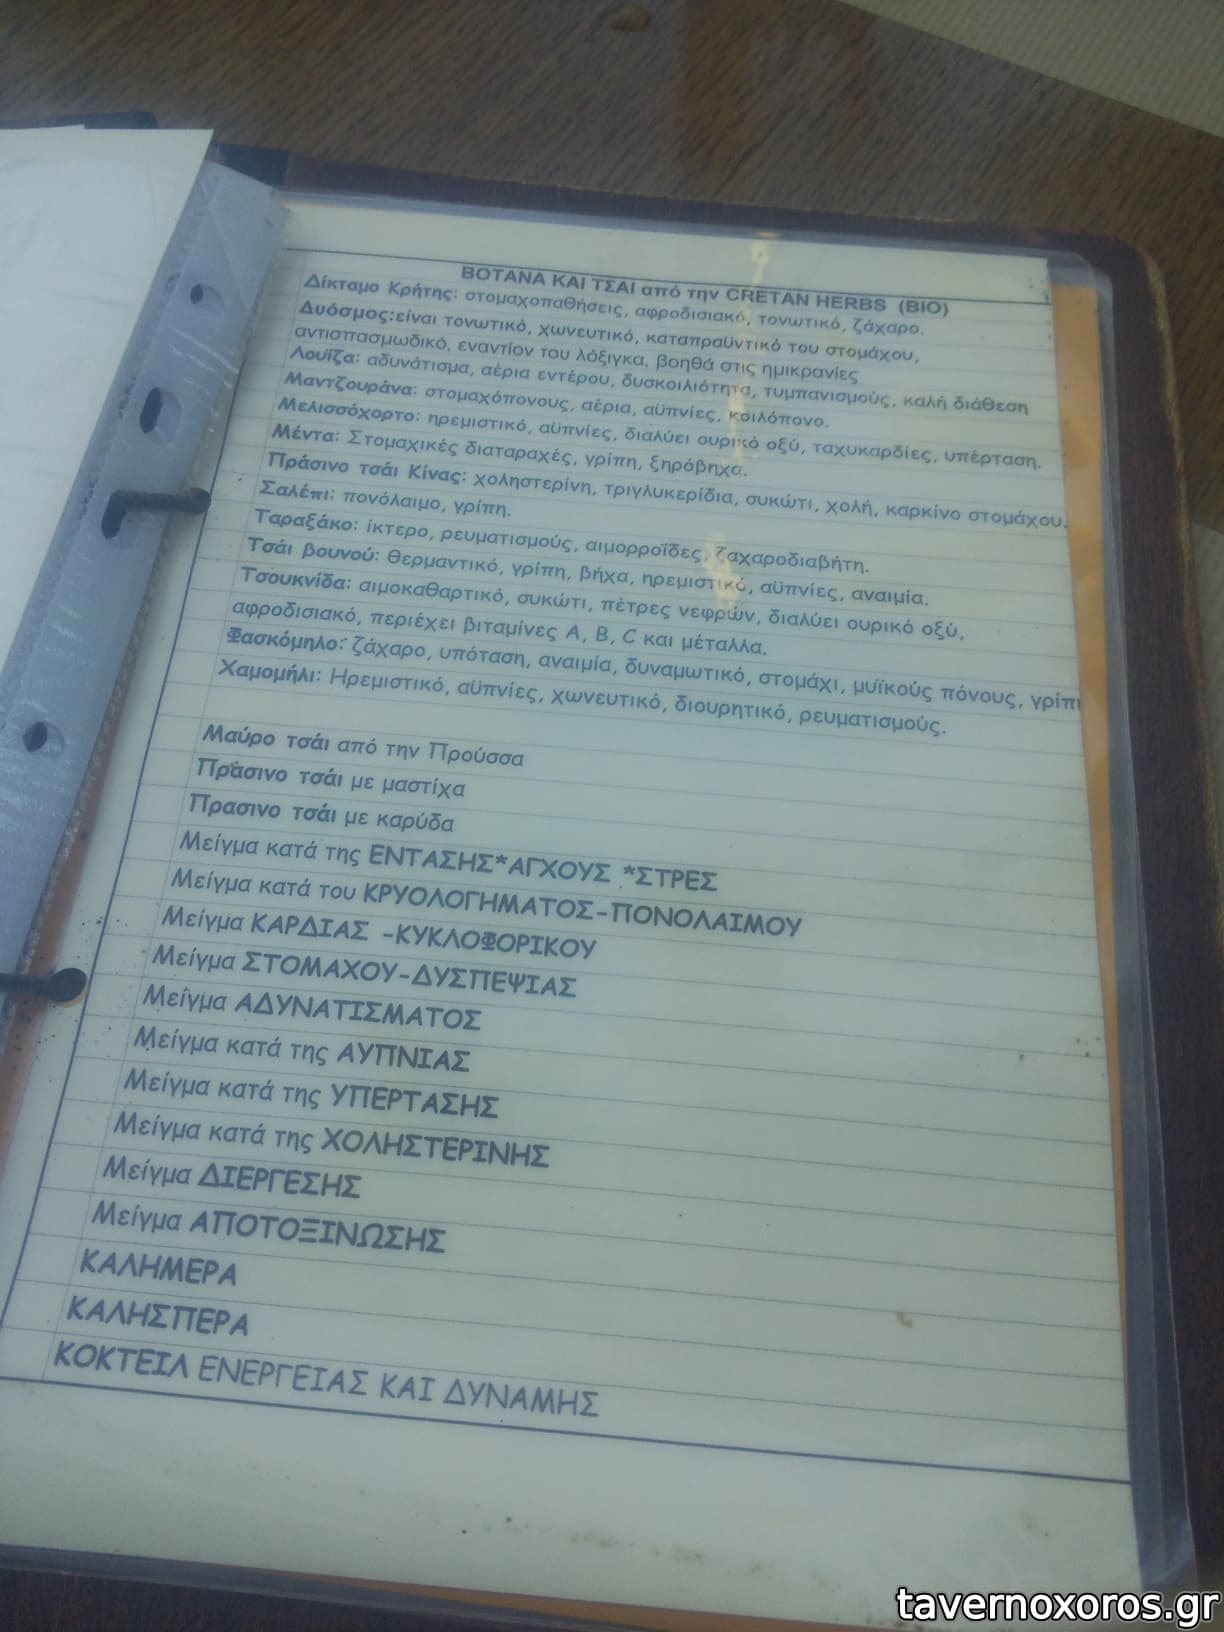 ΒΟΤΑΝΑ ΚΑΙ ΤΣΑΙ από την CRETAN HERBS (BIO)
Δίκταμο Κρήτης: στομαχοπαθήσεις, αφροδισιακό, τονωτικό, ζάχαρο.
Δυόσμος:είναι τονωτικό, χωνευτικό, καταπραϋντικό του στομάχου,
αντισπασμωδικό, εναντίον του λόξιγκα, βοηθά στις ημικρανίες
Λουΐζα: αδυνάτισμα, αέρια εντέρου, δυσκοιλιότητα, τυμπανισμούς, καλή διάθεση
Μαντζουράνα: στομαχόπονους, αέρια, αϋπνίες, κοιλόπονο.
Μελισσόχορτο: ηρεμιστικό, αϋπνίες, διαλύει ουρικό οξύ, ταχυκαρδίες, υπέρταση.
Μέντα: Στομαχικές διαταραχές, γρίπη, ξηρόβηχα.
Πράσινο τσάι Κίνας: χοληστερίνη, τριγλυκερίδια, συκώτι, χολή, καρκίνο στομάχου.
Σαλέπι: πονόλαιμο, γρίπη.
Ταραξάκο: ίκτερο, ρευματισμούς, αιμορροΐδες, ζαχαροδιαβήτη.
Τσάι βουνού: θερμαντικό, γρίπη, βήχα, ηρεμιστικό, αϋπνίες, αναιμία.
Τσουκνίδα: αιμοκαθαρτικό, συκώτι, πέτρες νεφρών, διαλύει ουρικό οξύ,
αφροδισιακό, περιέχει βιταμίνες Α, Β, C και μέταλλα.
Φασκόμηλο: ζάχαρο, υπόταση, αναιμία, δυναμωτικό, στομάχι, μυϊκούς πόνους, γρίπη
Χαμομήλι: Ηρεμιστικό, αϋπνίες, χωνευτικό, διουρητικό, ρευματισμούς.
Μαύρο τσάι από την Προύσσα
Πράσινο τσάι με μαστίχα
Πρασινο τσάι με καρύδα
Μείγμα κατά της ΕΝΤΑΣΗΣ*ΑΓΧΟΥΣ *ΣΤΡΕΣ
Μείγμα κατά του ΚΡΥΟΛΟΓΗΜΑΤΟΣ-ΠΟΝΟΛΑΙΜΟΥ
Μείγμα ΚΑΡΔΙΑΣ -ΚΥΚΛΟΦΟΡΙΚΟΥ
Μείγμα ΣΤΟΜΑΧΟΥ-ΔΥΣΠΕΨΙΑΣ
Μείγμα ΑΔΥΝΑΤΙΣΜΑΤΟΣ
Μείγμα κατά της ΑΥΠΝΙΑΣ
Μείγμα κατά της ΥΠΕΡΤΑΣΗΣ
Μείγμα κατά της ΧΟΛΗΣΤΕΡΙΝΗΣ
Μείγμα ΔΙΕΡΓΕΣΗΣ
Μείγμα ΑΠΟΤΟΞΙΝΩΣΗΣ
ΚΑΛΗΜΕΡΑ
ΚΑΛΗΣΠΕΡΑ
ΚΟΚΤΕΙΛ ΕΝΕΡΓΕΙΑΣ ΚΑΙ ΔΥΝΑΜΗΣ
tavernoxoros.gr